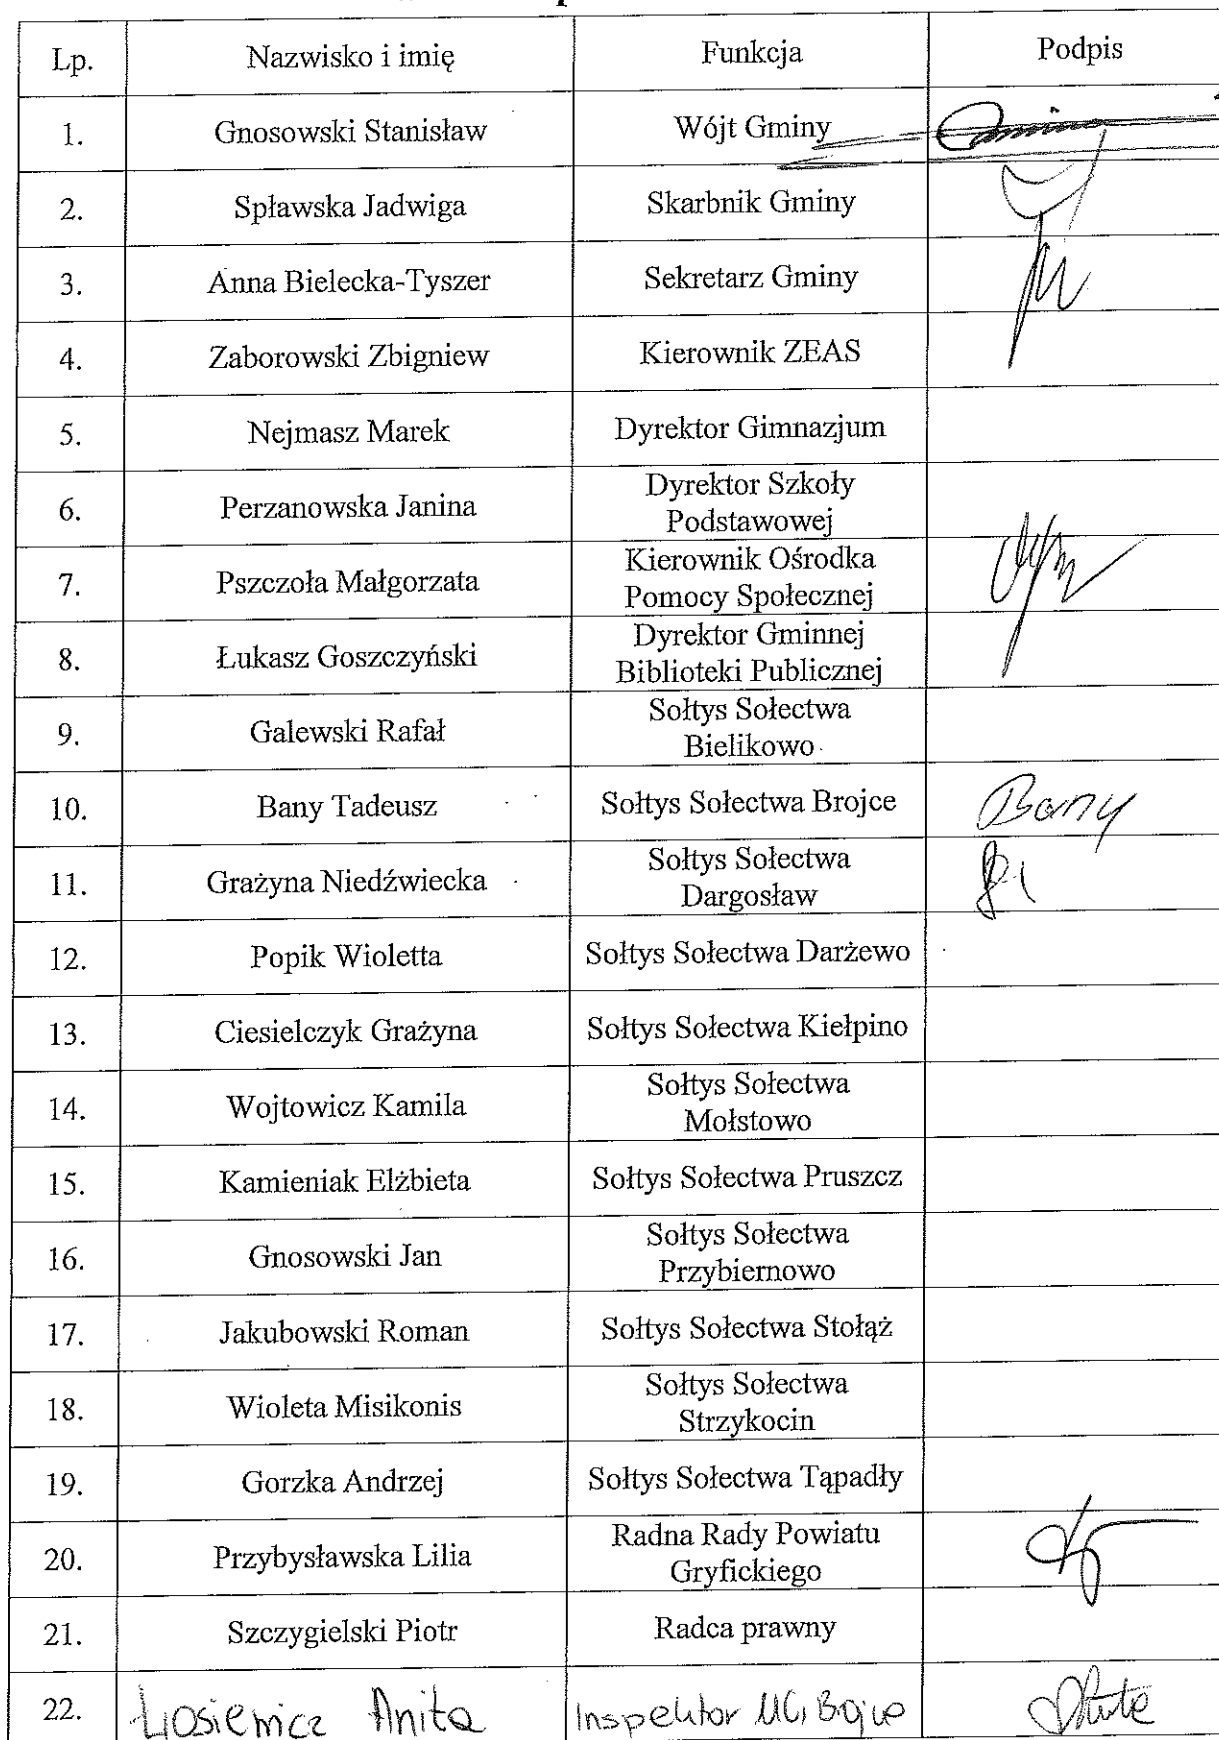 Lp. Nazwisko i imię Funkcja Podpis
1. Gnosowski Stanisław Wójt Gminy
2. Spławska Jadwiga Skarbnik Gminy
3. Anna Bielecka-Tyszer Sekretarz Gminy
4. Zaborowski Zbigniew Kierownik ZEAS
5. Nejmasz Marek Dyrektor Gimnazjum
6. Perzanowska Janina Dyrektor Szkoły
Podstawowej
7. Pszczoła Małgorzata Kierownik Ośrodka
Pomocy Społecznej
8. Łukasz Goszczyński Dyrektor Gminnej
Biblioteki Publicznej
9. Galewski Rafał Sołtys Sołectwa
Bielikowo
10. Bany Tadeusz Sołtys Sołectwa Brojce Bany
11. Grażyna Niedźwiecka Sołtys Sołectwa
Dargosław
12. Popik Wioletta Sołtys Sołectwa Darżewo
13. Ciesielczyk Grażyna Sołtys Sołectwa Kiełpino
14. Wojtowicz Kamila Sołtys Sołectwa
Mołstowo
15. Kamieniak Elżbieta Sołtys Sołectwa Pruszcz
16. Gnosowski Jan Sołtys Sołectwa
Przybiernowo
17. Jakubowski Roman Sołtys Sołectwa Stołąż
18. Wioleta Misikonis Sołtys Sołectwa
Strzykocin
19. Gorzka Andrzej Sołtys Sołectwa Tąpadły
20. Przybysławska Lilia Radna Rady Powiatu
Gryfickiego
21. Szczygielski Piotr Radca prawny
22. Łosiewicz Anita Inspektor UG